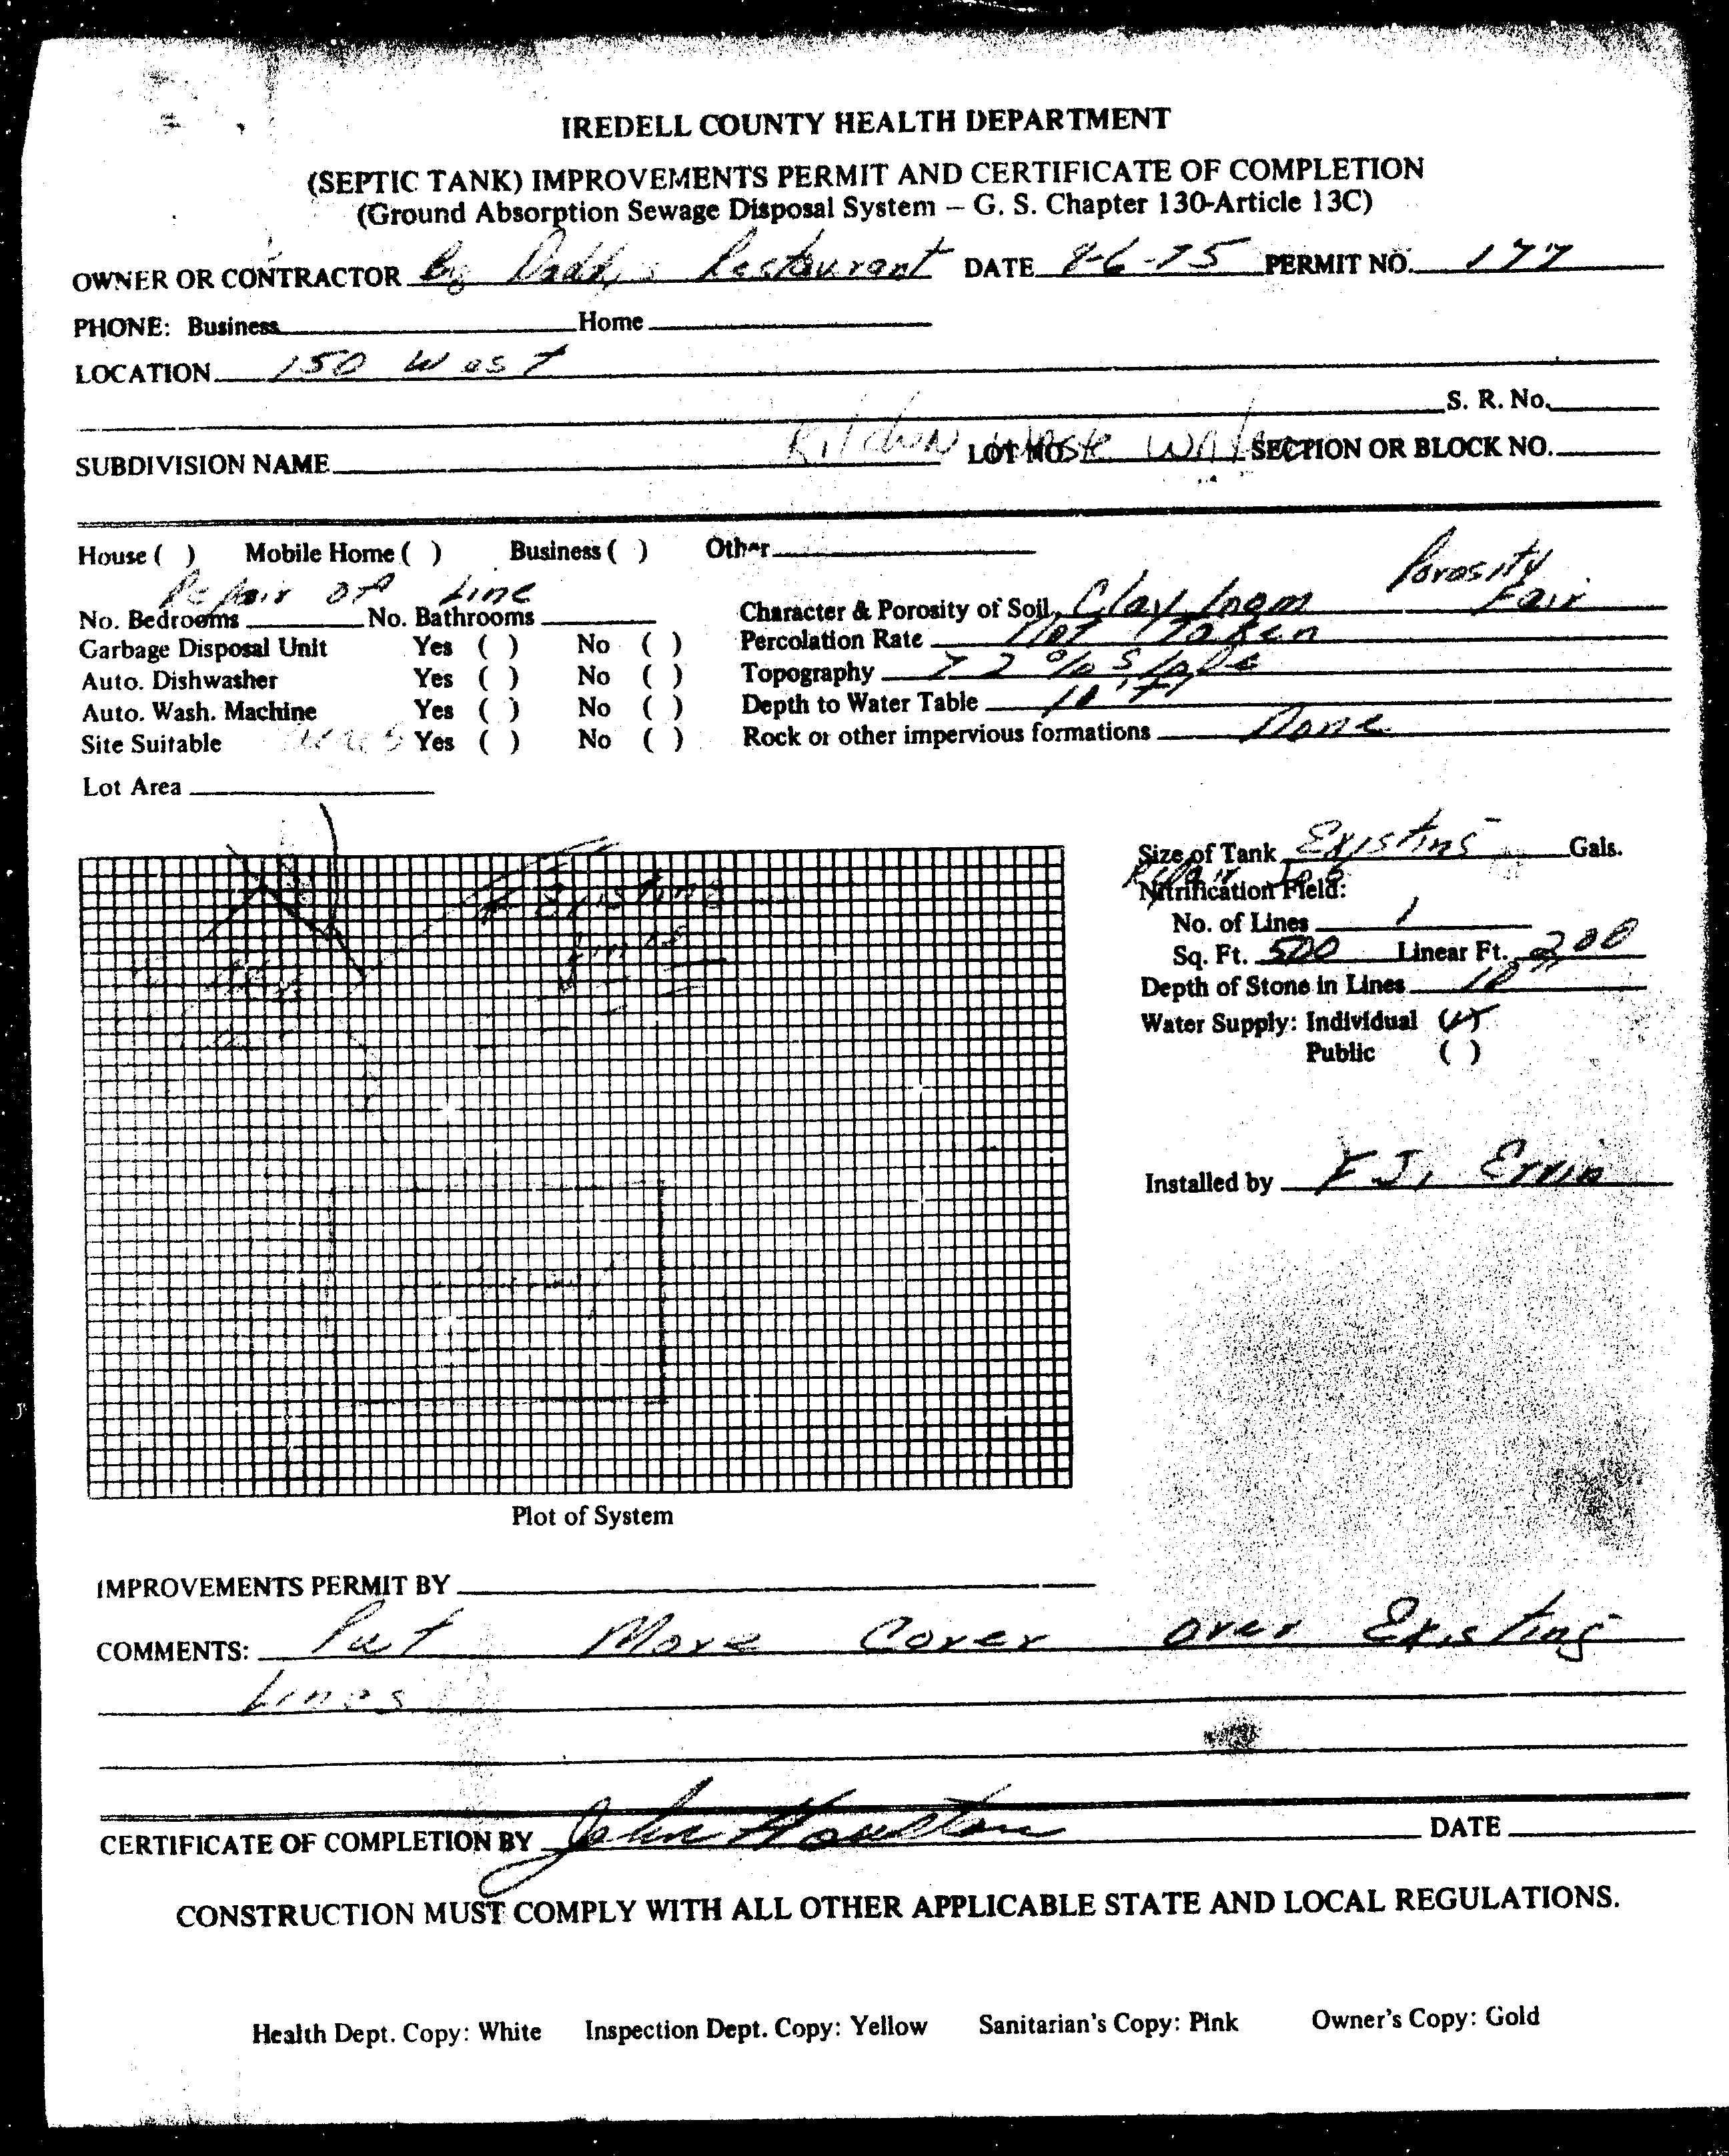 IREDELL COUNTY HEALTH DEPARTMENT
(SEPTIC TANK) IMPROVEMENTS PERMIT AND CERTIFICATE OF COMPLETION
(Ground Absorption Sewage Disposal System – G. S. Chapter 130-Article 13C)
OWNER OR CONTRACTOR Big Daddy's Restaurant DATE 8-6-75 PERMIT NO. 177
PHONE: Business Home
LOCATION 150 West
S. R. No.
Kitchen Waste Water
SUBDIVISION NAME LOT NO. SECTION OR BLOCK NO.
House ( ) Mobile Home ( ) Business ( ) Other
Repair of Line Porosity
No. Bedrooms No. Bathrooms Character & Porosity of Soil Clay loam Fair
Garbage Disposal Unit Yes ( ) No ( ) Percolation Rate Not Taken
Auto. Dishwasher Yes ( ) No ( ) Topography > 2 % Slope
Auto. Wash. Machine Yes ( ) No ( ) Depth to Water Table 10'+
Site Suitable Yes ( ) No ( ) Rock or other impervious formations None
Lot Area
Existing
Lines
Size of Tank Existing Gals.
Repair Job
Nitrification Field:
No. of Lines 1
Sq. Ft. 500 Linear Ft. 200
Depth of Stone in Lines 10"
Water Supply: Individual (✓)
Public ( )
Installed by F. J. Ervin
Plot of System
IMPROVEMENTS PERMIT BY
COMMENTS: Put More Cover over Existing
Lines
CERTIFICATE OF COMPLETION BY John Houston DATE
CONSTRUCTION MUST COMPLY WITH ALL OTHER APPLICABLE STATE AND LOCAL REGULATIONS.
Health Dept. Copy: White Inspection Dept. Copy: Yellow Sanitarian's Copy: Pink Owner's Copy: Gold